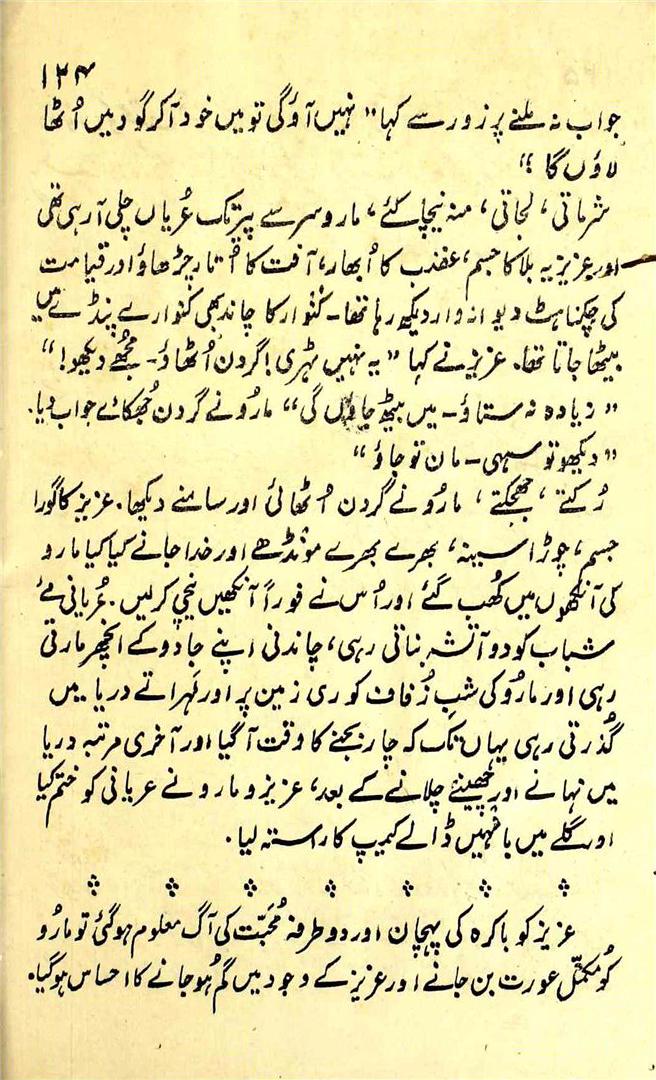 ۱۲۴
جواب نہ ملنے پر زور سے کہا” نہیں آؤگی تو میں خود آکر گود میں اُٹھا
لاؤں گا “
شرماتی ، لجاتی ، منہ نیچا کئے ، مارو سر سے پیر تک عُریاں چلی آ رہی تھی
اور عزیز یہ بلا کا جسم، غضب کا اُبھار، آفت کا اُتار چڑھاؤ اور قیامت
کی چکناہٹ دیوانہ وار دیکھ رہا تھا۔ کنوار کا چاند بھی کنوارے پنڈے میں
بیٹھا جاتا تھا. عزیز نے کہا ” یہ نہیں ٹہری! گردن اُٹھاؤ۔ مجھے دیکھو! “
” زیادہ نہ ستاؤ۔ میں بیٹھ جاؤں گی “ مارُو نے گردن جُھکائے جواب دیا.
” دیکھو تو سہی۔ مان تو جاؤ “
رُکتے ، جھجکتے ، مارُو نے گردن اُٹھائی اور سامنے دیکھا. عزیز کا گورا
جسم، چوڑا سینہ، بھرے بھرے مونڈھے اور خدا جانے کیا کیا مارو
کی آنکھوں میں کُھب گئے اور اُس نے فوراً آنکھیں نیچی کرلیں. عُریانی مئے
شباب کو دو آتشہ بناتی رہی، چاندنی اپنے جادو کے انچھر مارتی
رہی اور مارُو کی شبِ زُفاف کوری زمین پر اور لہراتے دریا میں
گُذرتی رہی یہاں تک کہ چار بجنے کا وقت آگیا اور آخری مرتبہ دریا
میں نہانے اور چھینٹے چلانے کے بعد، عزیز و مارو نے عریانی کو ختم کیا
اور گلے میں بانہیں ڈالے کیمپ کا راستہ لیا.
عزیز کو باکرہ کی پہچان اور دو طرفہ مُحبّت کی آگ معلوم ہوگئی تو مارُو
کو مکمّل عورت بن جانے اور عزیز کے وجود میں گُم ہُو جانے کا احساس ہوگیا.